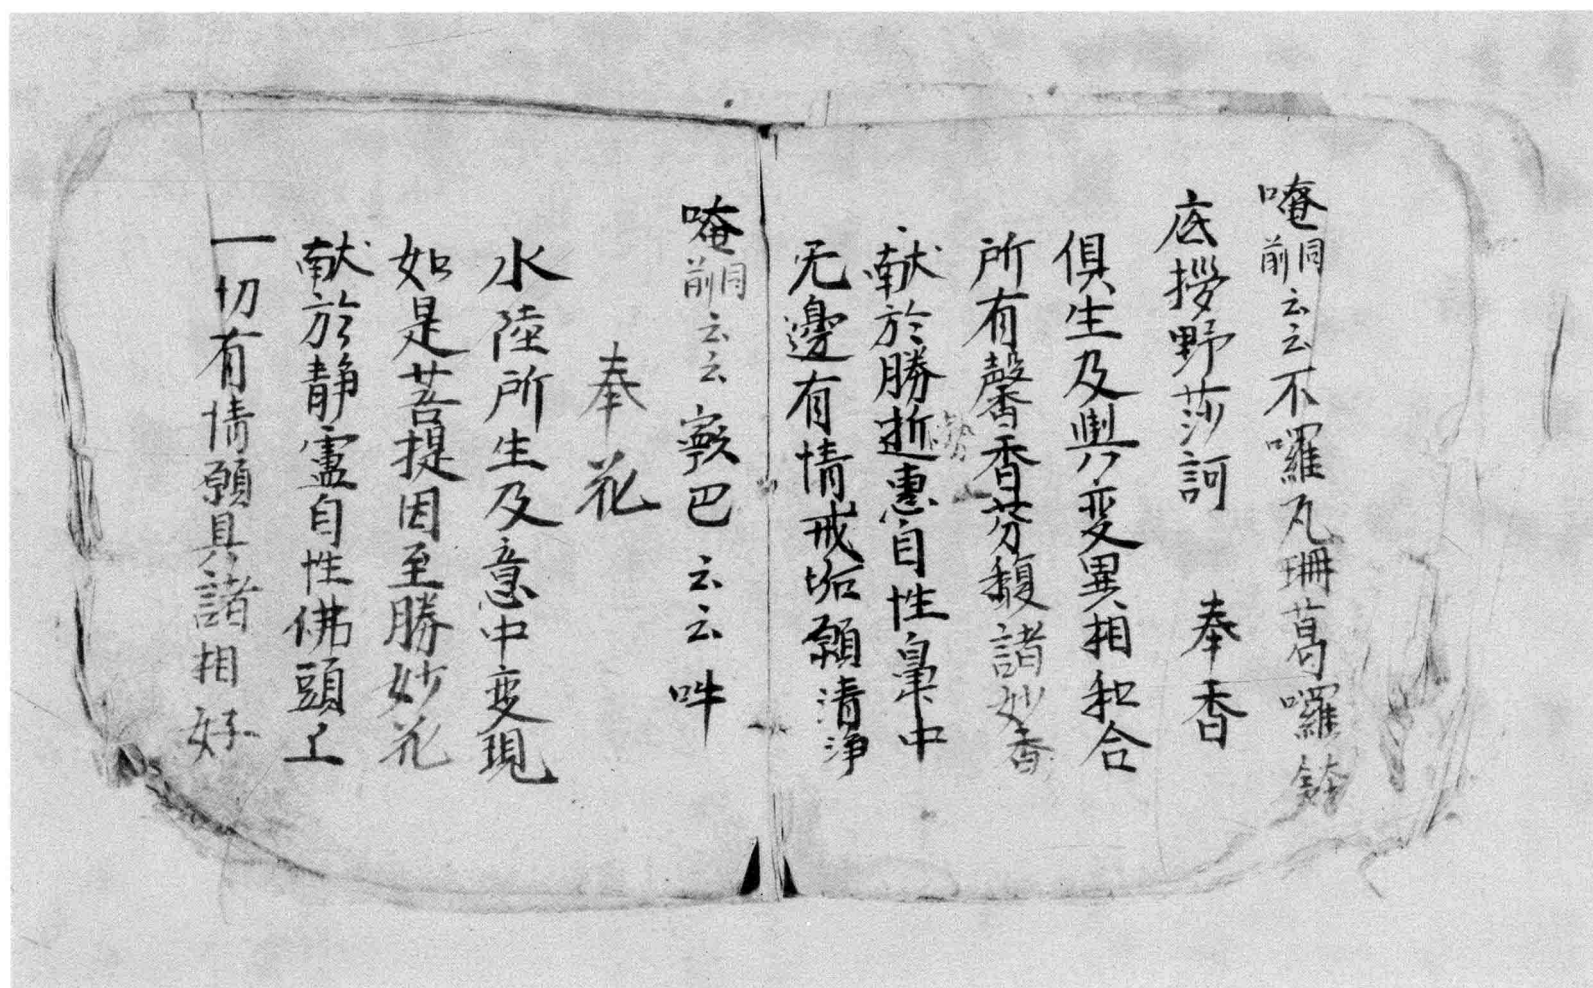 唵同前云云不囉瓦珊葛囉
底拶野莎訶　奉香
俱生及與変異相和合
所有馨香芬馥諸妙香
献於勝逝惠自性鼻中
无邊有情戒垢願清淨
唵同前云云 巴云云吽
奉花
水陸所生及意中变現
如是菩提因至勝妙花
献於静慮自性佛頭上
一切有情願具諸相好